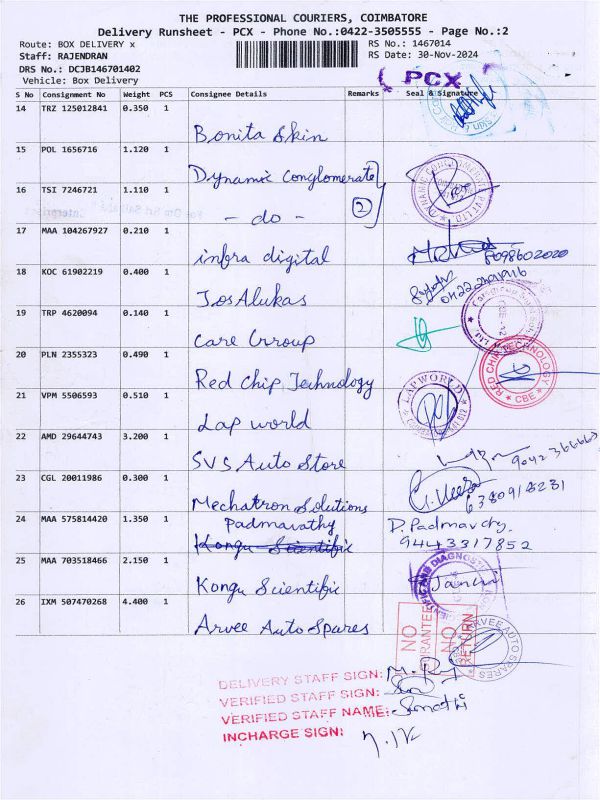 THE PROFESSIONAL COURIERS, COIMBATORE
Delivery Runsheet - PCX - Phone No.:0422-3505555 - Page No.:2
Route: BOX DELIVERY x
RS No.: 1467014
Staff: RAJENDRAN
RS Date: 30-Nov-2024
DRS No.: DCJB146701402
Vehicle: Box Delivery
PCX
S No Consignment No Weight PCS Consignee Details Remarks Seal & Signature
14 TRZ 125012841 0.350 1 Bonita Skin
15 POL 1656716 1.120 1 Dynamic Conglomerate
16 TSI 7246721 1.110 1 - do - 2
17 MAA 104267927 0.210 1 infra digital 8098602020
18 KOC 61902219 0.400 1 JosAlukas
19 TRP 4620094 0.140 1 Care Group
20 PLN 2355323 0.490 1 Red Chip Technology
RED CHIP TECHNOLOGY
CBE
21 VPM 5506593 0.510 1 Lap world
LAPWORLD
22 AMD 29644743 3.200 1 SVS Auto Store
23 CGL 20011986 0.300 1 Mechatron Solutions 6380918231
24 MAA 575814420 1.350 1 Padmavathy D. Padmavathy.
Kongu Scientific 9443317852
25 MAA 703518466 2.150 1 Kongu Scientific
26 IXM 507470268 4.400 1 Arvee Auto Spares
NO GUARANTEE
NO RETURN
ARVEE AUTOSPARES
DELIVERY STAFF SIGN:
VERIFIED STAFF SIGN:
VERIFIED STAFF NAME:
INCHARGE SIGN: